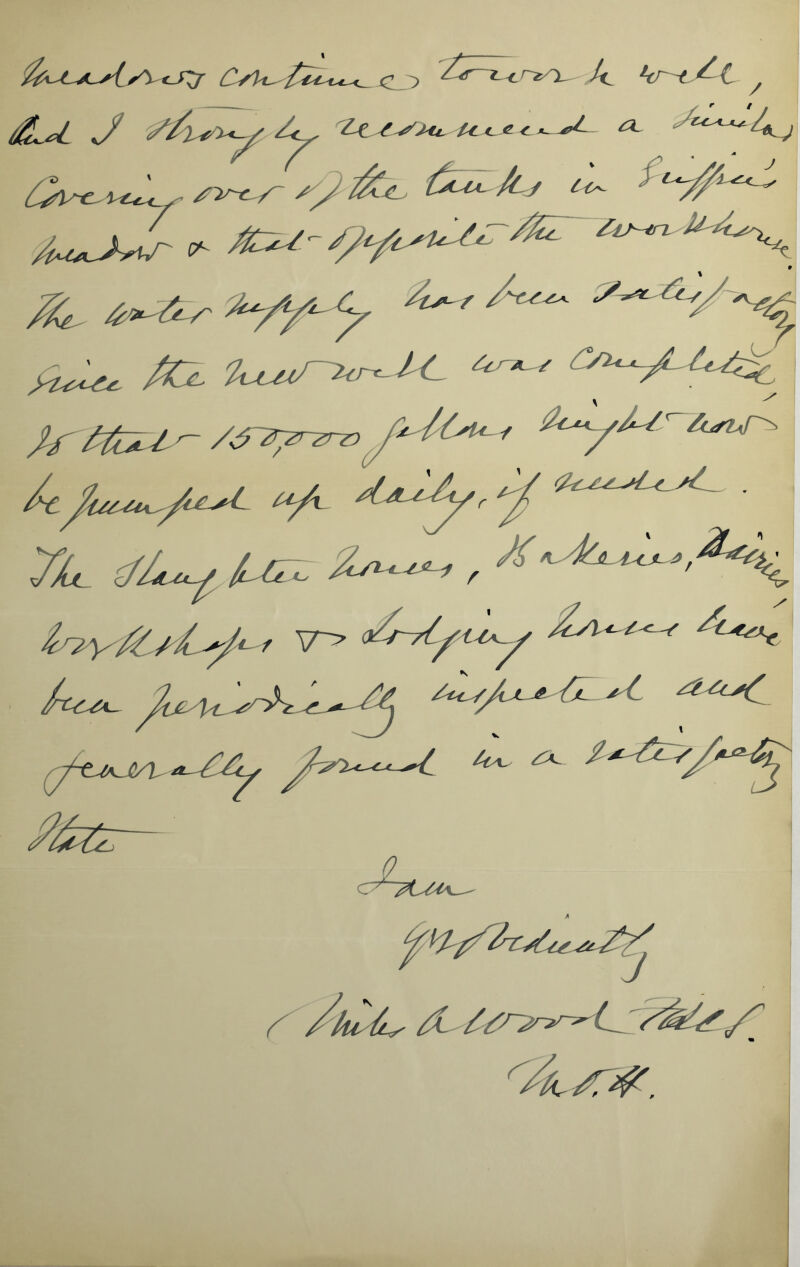 meadows continue to work well,
and I strongly recommend a similar
covering over of the tanks in Griffin's
meadow & that opposite the workhouse.
The water supply has been satisfactory
since the new well was completed,
so that 150,000 gallons might now
be pumped up daily, if needed.
The Slaughter houses, Bakeries, Dairies,
workshops & Lodging houses have
been periodically inspected and
generally found in a satisfactory
State
I am
Yrs obediently
Miles A Wood FRCS.
M.O.H.